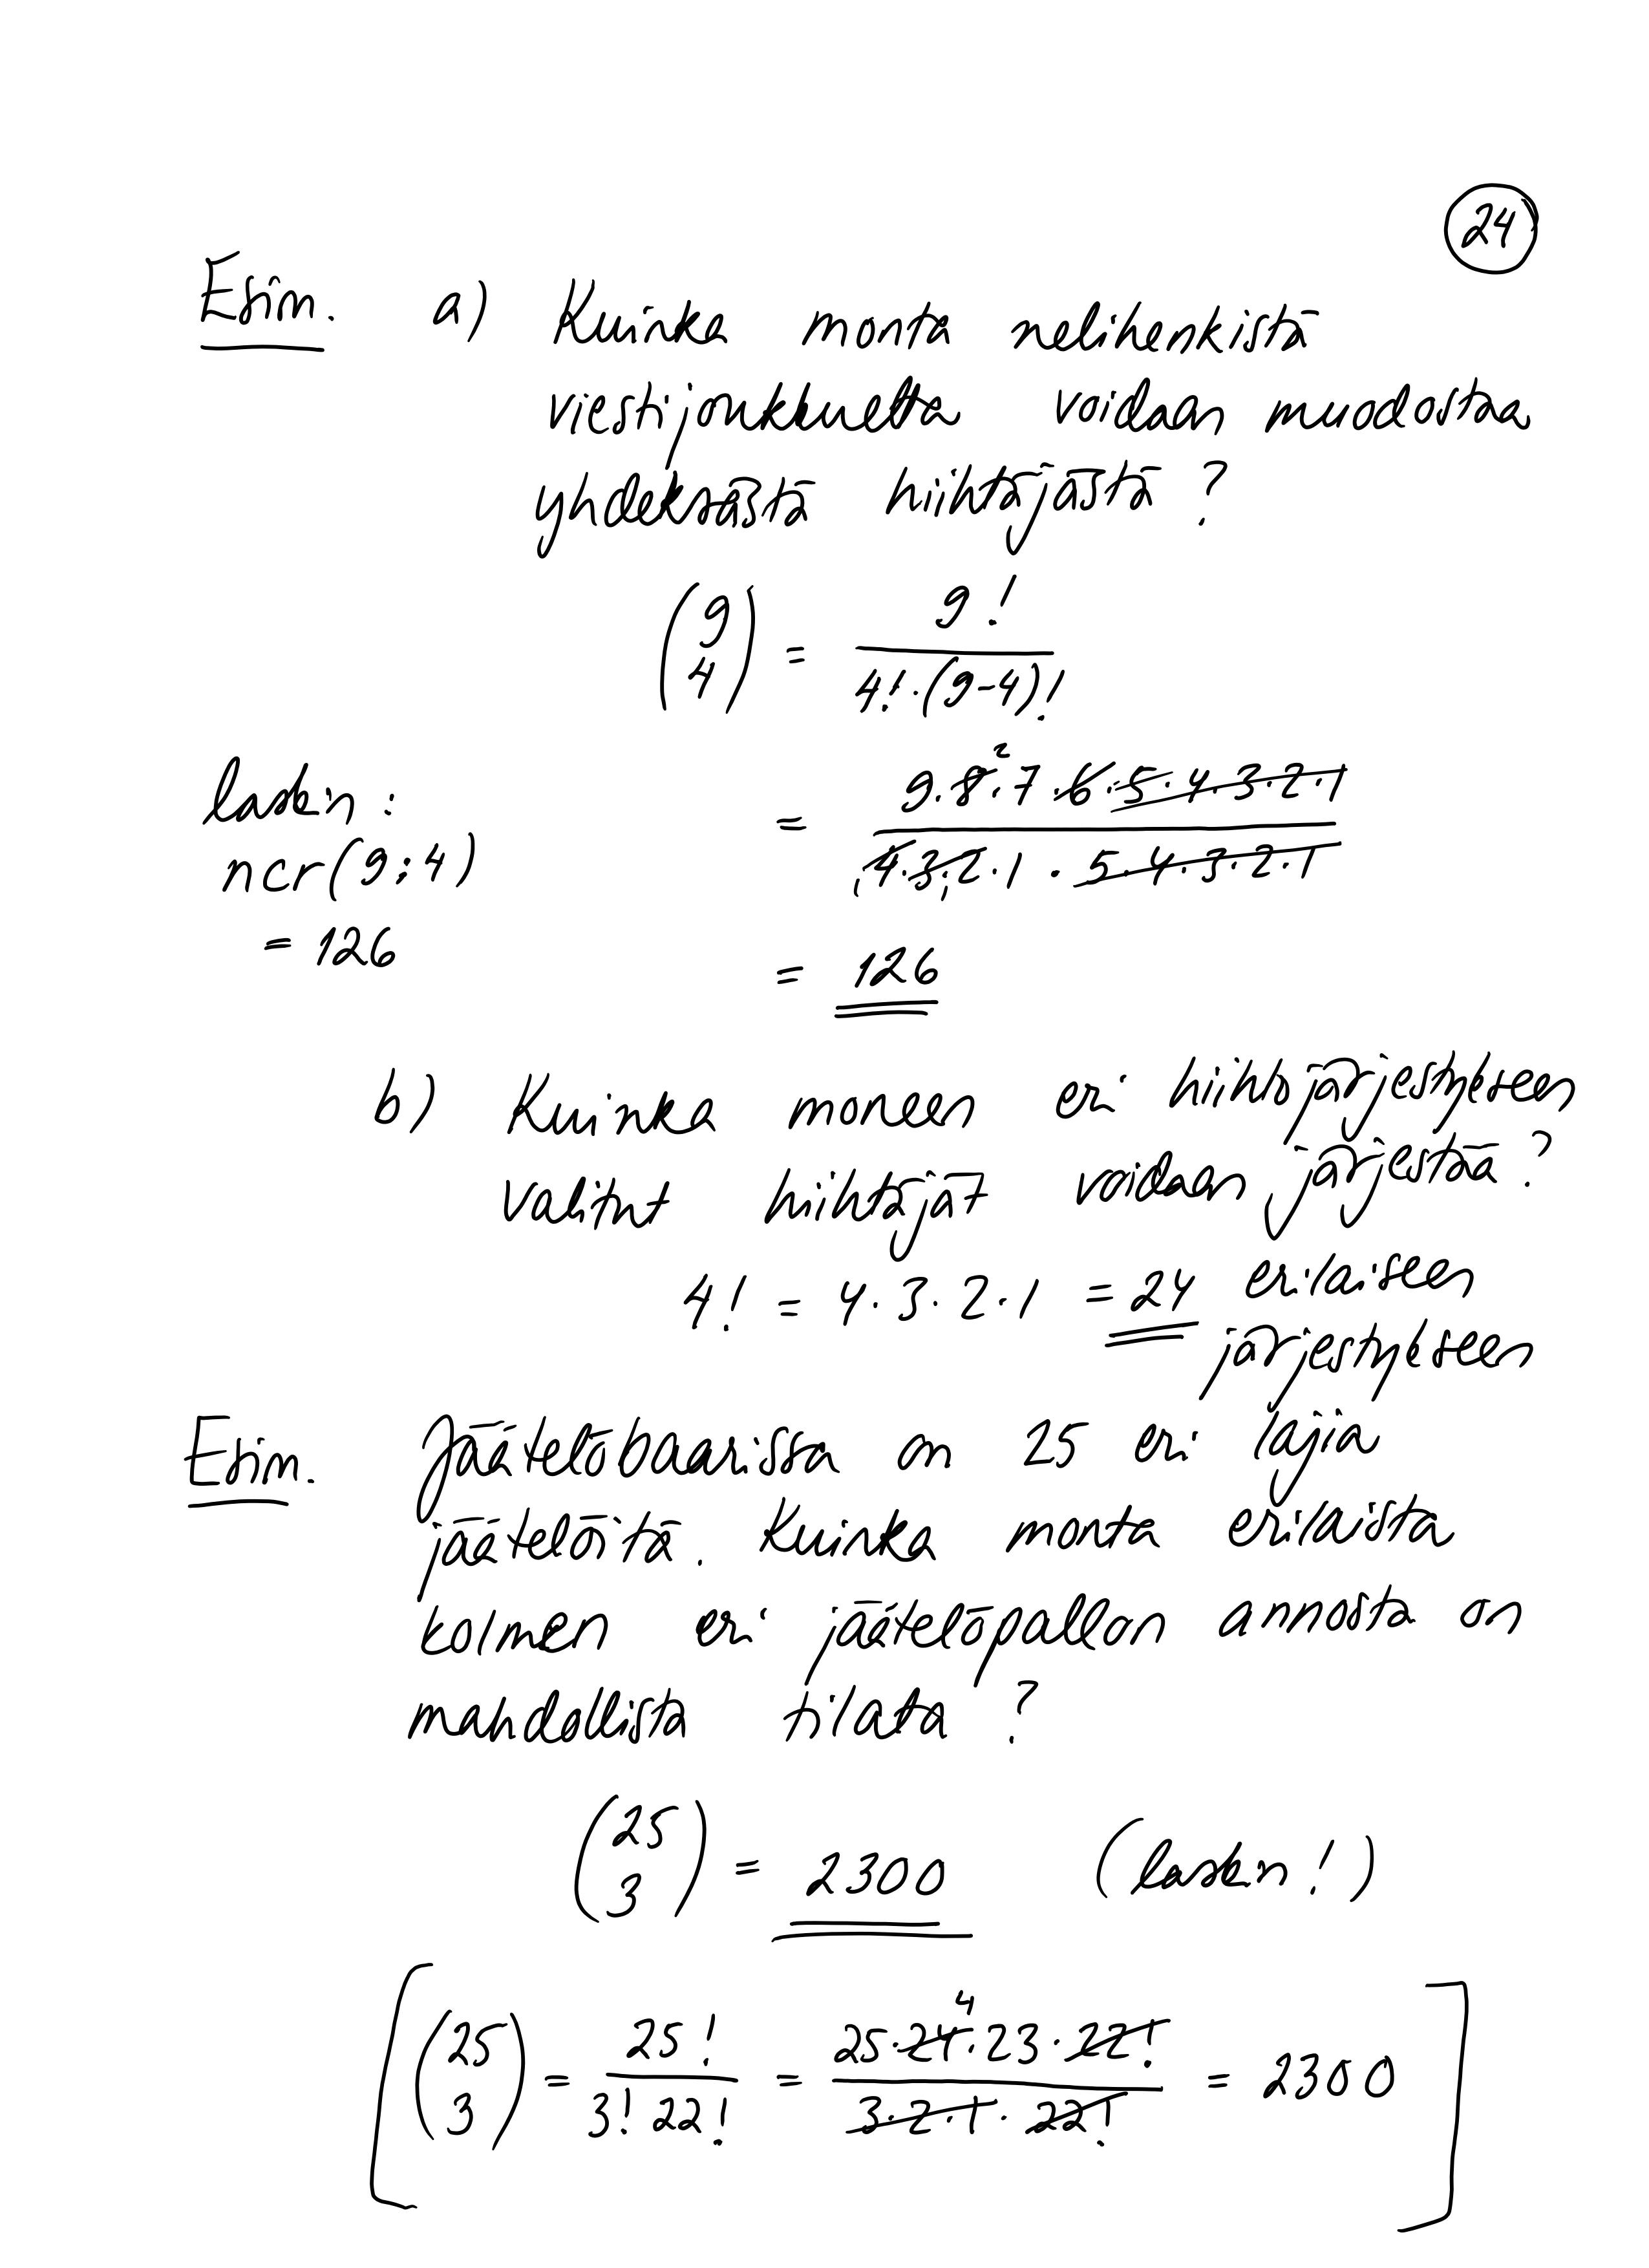 24
Esim. a) Kuinka monta nelihenkistä
viestijoukkuetta voidaan muodostaa
yhdeksästä hiihtäjästä ?
(9 4) = 9! / (4! · (9-4)!)
laskin : = (9 · 8² · 7 · 6 · 5 · 4 · 3 · 2 · 1) / (4 · 3 · 2 · 1 · 5 · 4 · 3 · 2 · 1)
ncr(9;4)
= 126
= 126
b) Kuinka moneen eri hiihtojärjestykseen
valitut hiihtäjät voidaan järjestää ?
4! = 4 · 3 · 2 · 1 = 24 erilaiseen
järjestykseen
Esim. Jäätelöbaarissa on 25 eri lajia
jäätelöitä. Kuinka monta erilaista
kolmen eri jäätelöpallon annosta on
mahdollista tilata ?
(25 3) = 2300 (laskin!)
[(25 3) = 25! / (3! 22!) = (25 · 24⁴ · 23 · 22!) / (3 · 2 · 1 · 22!) = 2300]